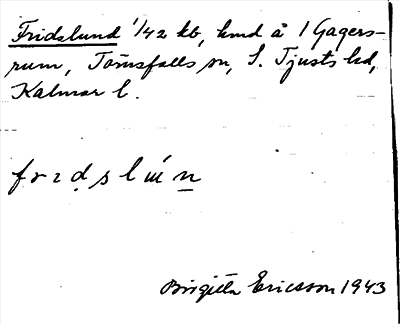 Fridslund 1/42 kb, hmd å 1 Gagers-
rum, Törnsfalls sn, S. Tjusts hd,
Kalmar l.
Birgitta Ericsson 1943